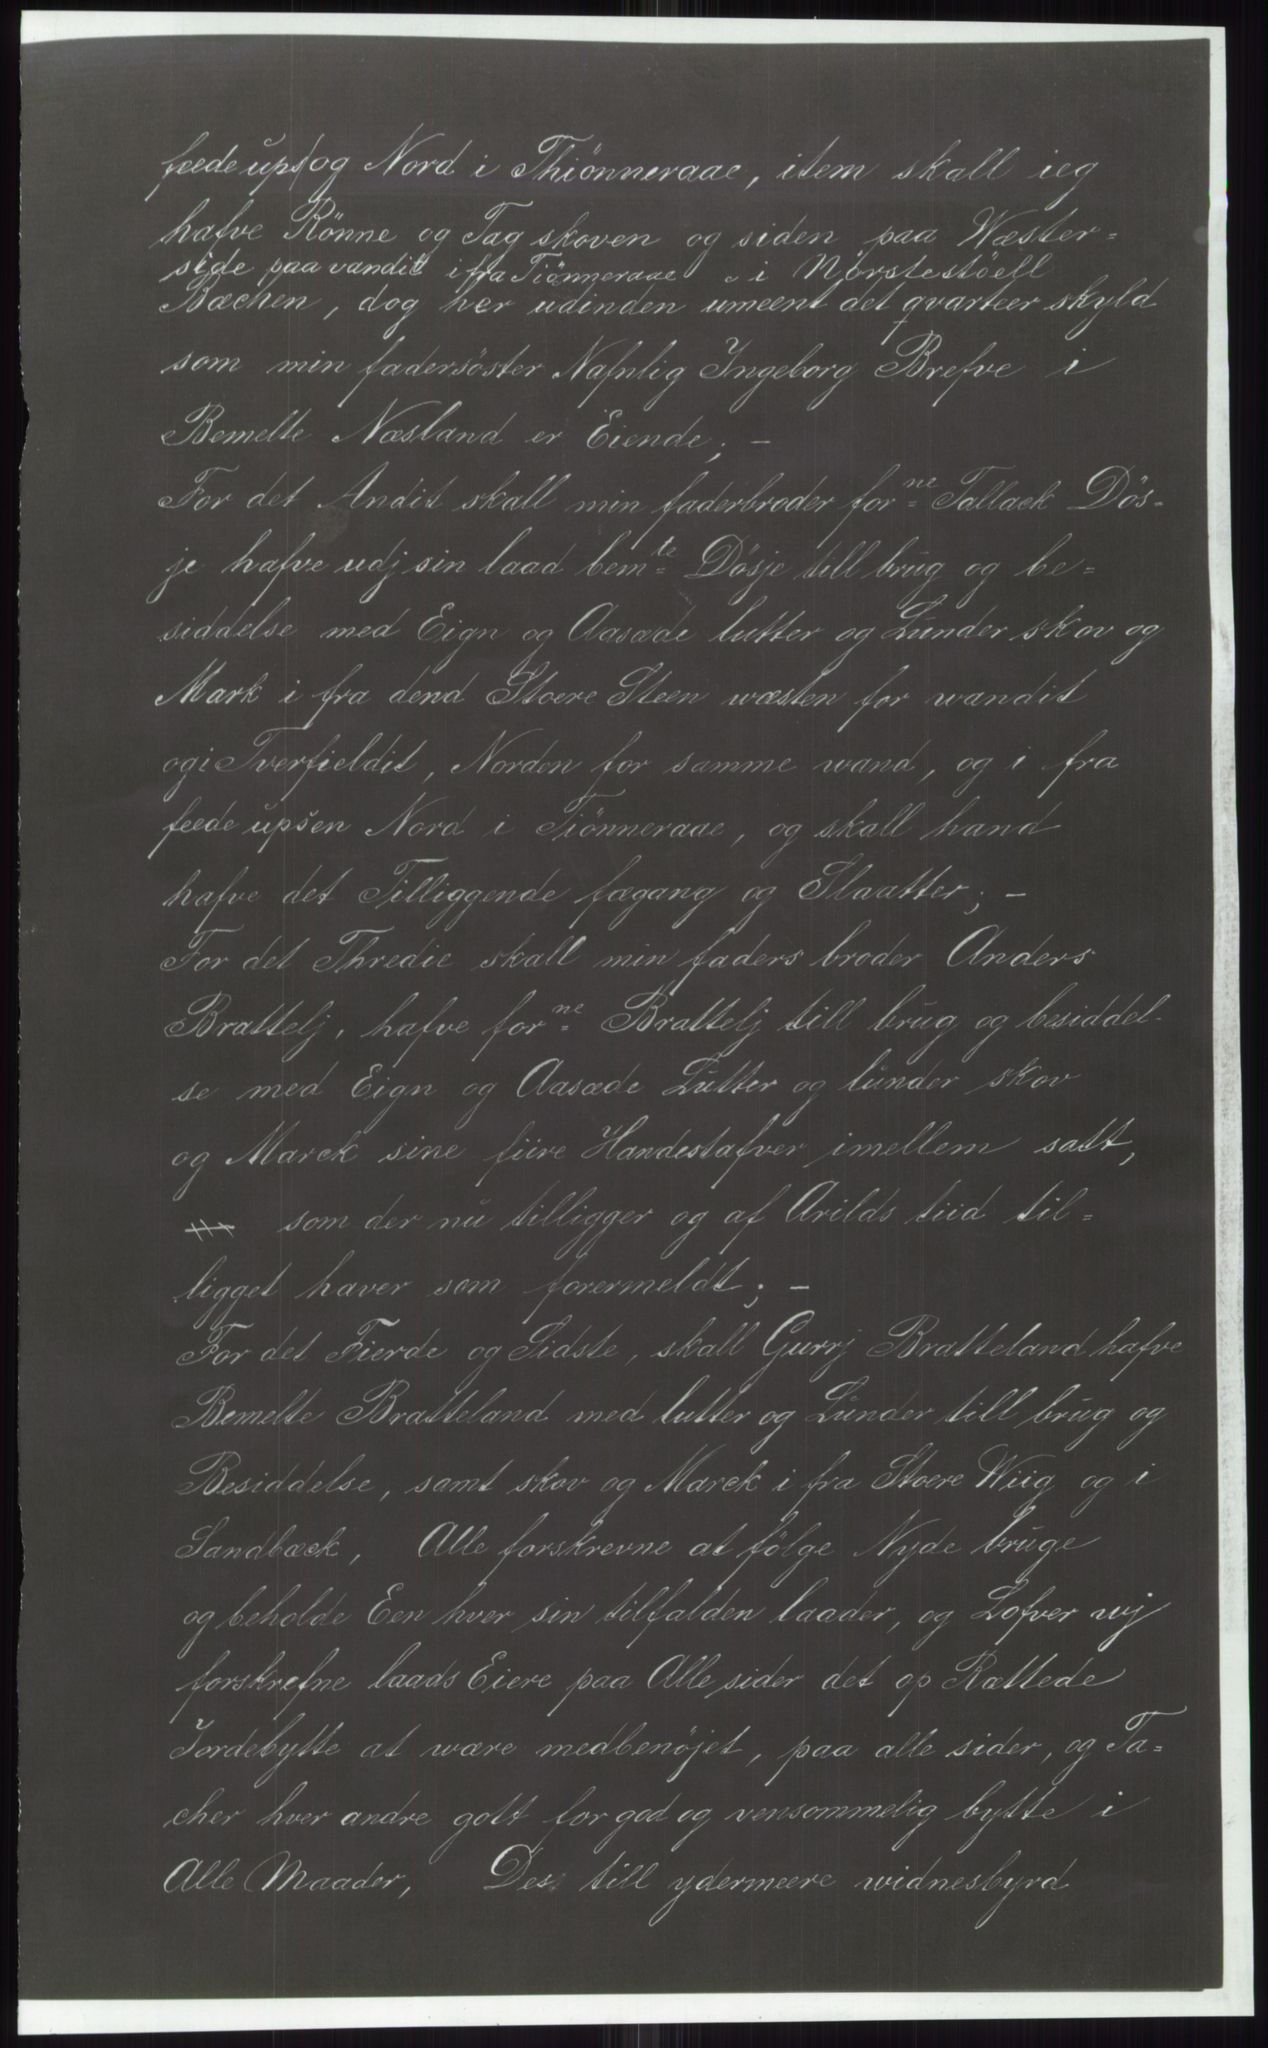 feede upsog Nord i Thiønneraae, item skall ieg
hafve Rønne og Tag skoven og siden paa Wæster=
side paa vandit ifra Tiønneraae i Nørstestöell
Bæchen, dog her udinden umeent det qvarteer skyld
som min fadersøster Nafnlig Ingeborg Brefve i
Bemelte Næsland er Eiende; -
For det Andit skall min faderbroder forne Tallack Døs-
je hafve udj sin laad bemte Døsje till brug og be=
siddelse med Eign og Aasæde lutter og Lunder skov og
Mark i fra dend Stoere Steen wæsten for wandit
ogi Tverfieldit, Norden for samme wand, og i fra
feede upsen Nord i Tiønneraae, og skall hand
hafve det Tilliggende fægang og Slaatter; -
For det Thredie skall min faders broder Anders
Brattelj, hafve forne Brattelj till brug og besiddel-
se med Eign og Aasæde Lutter og lunder skov
og Marck sine fiire Handestafver imellem satt,
som der nu tilligger og af Arilds tiid til=
ligget haver som forermeldt; -
For det Fierde og Sidste, skall Gurrj Bratteland hafve
Bemelte Bratteland med lutter og Lunder till brug og
Besiddelse, samt skov og Marck i fra Stoere Wiig og i
Sandbæck, Alle forskrevne at følge Nyde bruge
og beholde Een hver sin tilfalden laader, og Lofver wj
forskrefne laads Eiere paa Alle sider det op Rættede
Jordebytte at wære medbenøjet, paa alle sider, og Ta=
cher hver andre gott for god og vensommelig bytte i
Alle Maader, Des till ydermeere widnesbyrd